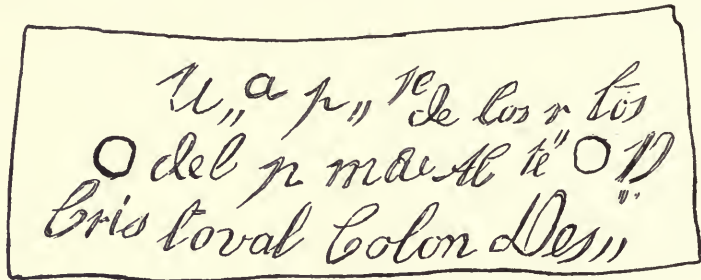 U„ a p„ te de los r tos
del p mer Al te D
Cristoval Colon Des„